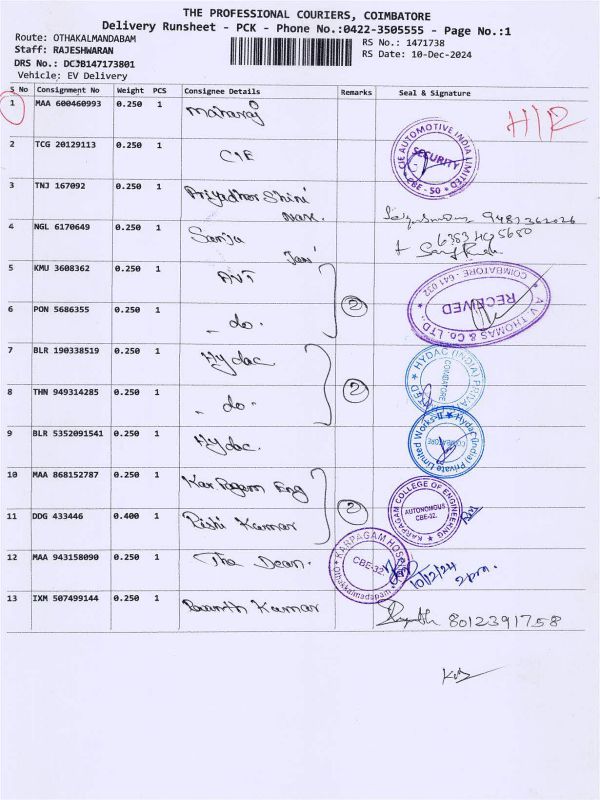 THE PROFESSIONAL COURIERS, COIMBATORE
Delivery Runsheet - PCK - Phone No.:0422-3505555 - Page No.:1
Route: OTHAKALMANDABAM
RS No.: 1471738
Staff: RAJESHWARAN
RS Date: 10-Dec-2024
DRS No.: DCJB147173801
Vehicle: EV Delivery
S No Consignment No Weight PCS Consignee Details Remarks Seal & Signature
1 MAA 600460993 0.250 1 Maharaj
2 TCG 20129113 0.250 1 CIE
CIE AUTOMOTIVE INDIA LIMITED
SECURITY
CBE - 50
3 TNJ 167092 0.250 1 Priyadharshini
4 NGL 6170649 0.250 1 Sanju
5 KMU 3608362 0.250 1 AVT
A.V. THOMAS & CO. LTD.,
RECEIVED
COIMBATORE - 641 032
6 PON 5686355 0.250 1 - do - 2
7 BLR 190338519 0.250 1 Hydac
HYDAC (INDIA) PRIVATE LIMITED
COIMBATORE
8 THN 949314285 0.250 1 - do - 2
9 BLR 5352091541 0.250 1 Hydac
Hydac (India) Private Limited Works-II
10 MAA 868152787 0.250 1 Karpagam Eng
KARPAGAM COLLEGE OF ENGINEERING
AUTONOMOUS
CBE-32.
11 DDG 433446 0.400 1 Rishi Kumar 2
12 MAA 943158090 0.250 1 The Dean.
CBE-32
10/12/24
2pm.
13 IXM 507499144 0.250 1 Kumar 8012391758